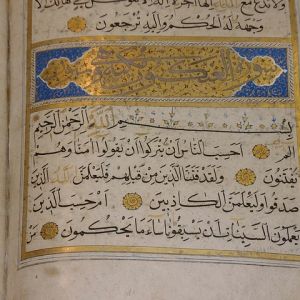 ولا تدع مع الله إلها آخر لا إله إلا هو كل شيء هالك إلا
وجهه له الحكم وإليه ترجعون
سورة العنكبوت
بسم الله الرحمن الرحيم
الم أحسب الناس أن يتركوا أن يقولوا آمنا وهم لا
يفتنون ولقد فتنا الذين من قبلهم فليعلمن الله الذين
صدقوا وليعلمن الكاذبين أم حسب الذين
يعملون السيئات أن يسبقونا ساء ما يحكمون من